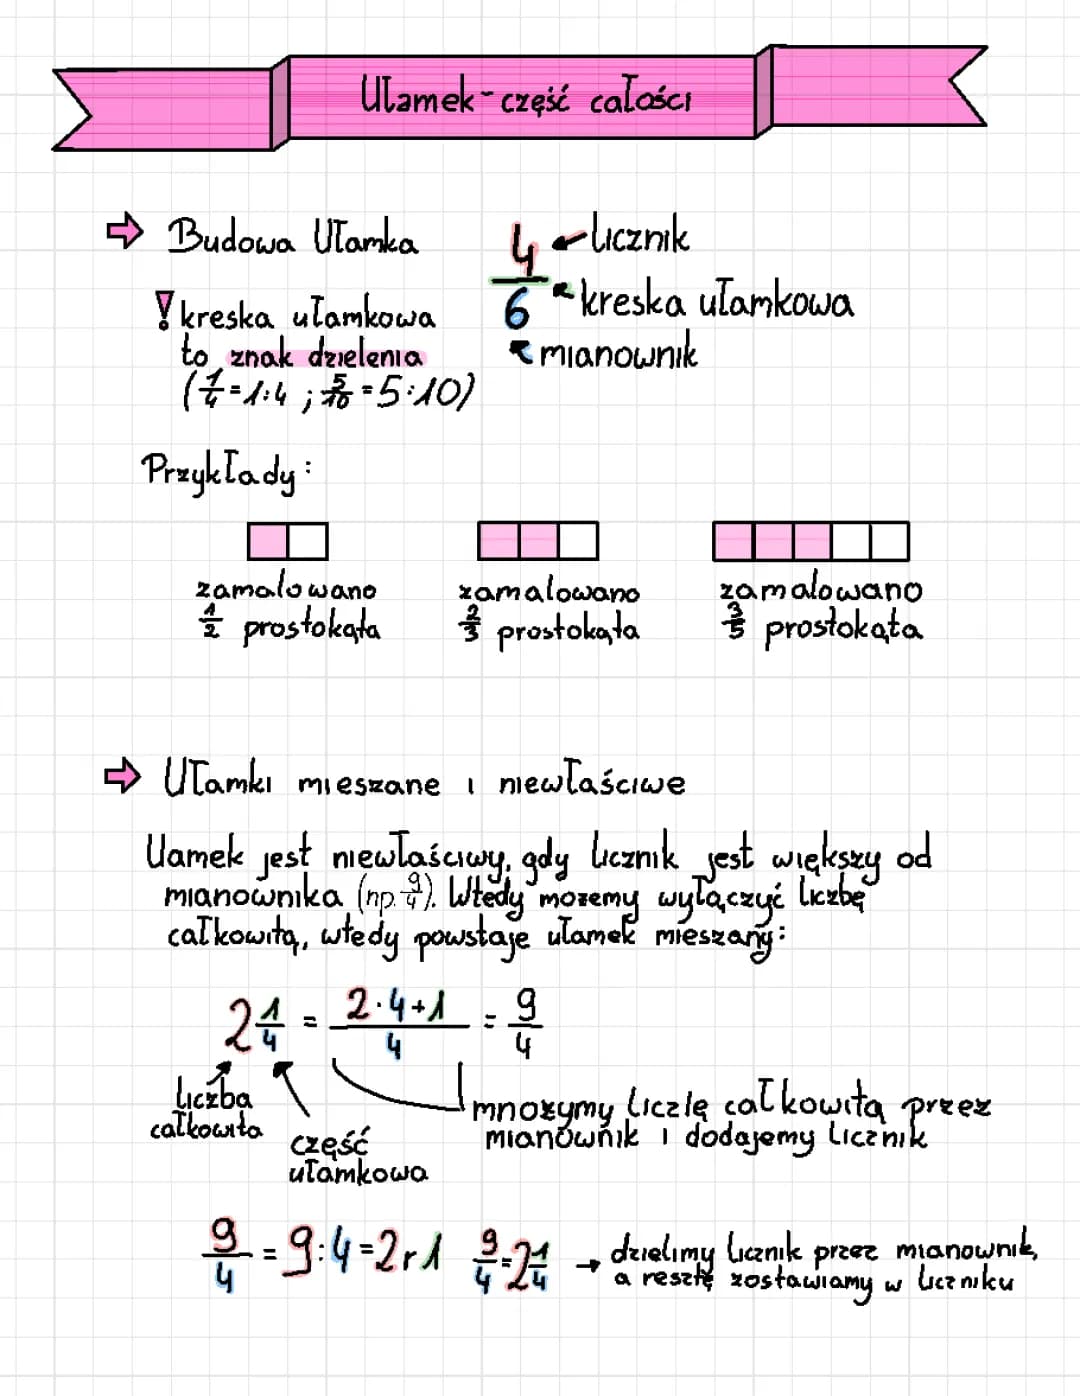 Ułamek - część całości
Budowa Ułamka
4 licznik
6 kreska ułamkowa
mianownik
! kreska ułamkowa
to znak dzielenia
(1/4 = 1:4 ; 5/10 = 5:10)
Przykłady:
zamalowano
1/2 prostokąta
zamalowano
2/3 prostokąta
zamalowano
3/5 prostokąta
Ułamki mieszane i niewłaściwe
Uamek jest niewłaściwy, gdy licznik jest większy od
mianownika (np. 9/4). Wtedy możemy wyłączyć liczbę
całkowitą, wtedy powstaje ułamek mieszany:
2 1/4 = 2·4+1/4 = 9/4
liczba
całkowita
część
ułamkowa
mnożymy liczlę całkowitą przez
mianownik i dodajemy licznik
9/4 = 9:4 = 2 r 1 9/4 = 2 1/4 → dzielimy licznik przez mianownik,
a resztę zostawiamy w liczniku